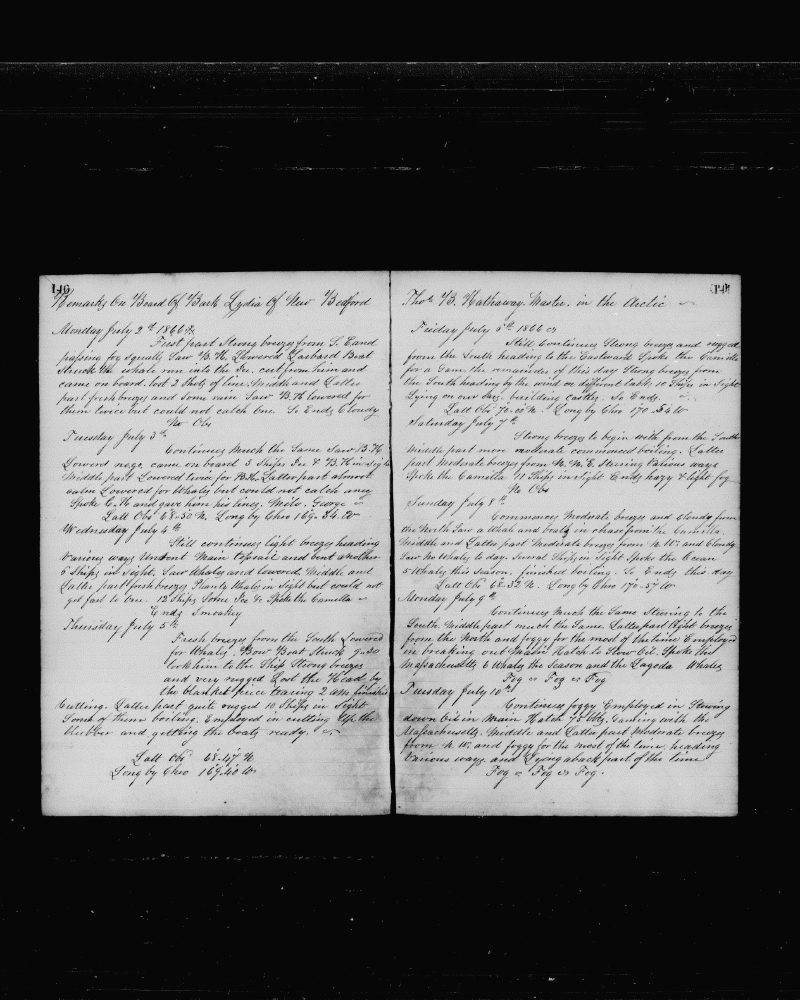 146
Remarks On Board of Bark Lydia of New Bedford
Monday July 2nd 1866
First part Strong breezes from S. E and
passing fog squalls Saw B. H. Lowered Larboard Boat
Struck the whale run into the Ice. cut from him and
came on board. lost 2 Shots of line. Middle and Latter
part fresh breezes and Some rain Saw B. H lowered for
them twice but could not catch One. So Ends Cloudy
No Obs
Tuesday July 3d
Continues Much the Same Saw B. H
Lowerd came on board 3 Ships Ice & B. H in Sight
Middle part Lowered twice for B. H. Latter part almost
calm Lowered for Whales but could not catch any
Spoke C. H and gave him his lines. Milo. George
Latt Obs 68-30 N. Long by Chro 169-34. W
Wednesday July 4th
Still continues light breezes heading
various ways Unbent Main Topsail and bent another
5 Ships in sight. Saw Whales and lowered. Middle and
Latter part fresh breezes Plenty Whales in Sight but could not
get fast to One. 12 Ships Some Ice &c Spoke the Camella
Ends Smokey
Thursday July 5th
Fresh breezes from the South Lowered
for Whales. Bow Boat Struck 9-30
took him to the Ship Strong breezes
and very rugged Lost the Head by
the blanket piece tearing 2 am finished
Cutting. Latter part quite rugged 10 Ships in Sight
Some of them boiling. Employed in cutting Up the
blubber and getting the boats ready.
Latt Obs 68-47 N
Long by Chro 169.40 W
Thos B. Hathaway. Master. in the Arctic
Friday July 6th 1866
Still Continues Strong breezes and rugged
from the South heading to the Eastward Spoke the Camilla
for a Gam the remainder of this day Strong breezes from
the South heading by the wind on different tacks 10 Ships in Sight
Lying on our oars. building castles. So Ends
Latt Obs 70-00 N. Long by Chro 170.54 W
Saturday July 7th
Strong breezes to begin with from the South
Middle part more moderate commenced boiling. Latter
part Moderate breezes from N. N. E. Steering Various ways
Spoke the Camilla 11 Ships in Sight Ends hazy & light fog
No Obs
Sunday July 8th
Commences Moderate breezes and Cloudy from
the North Saw a Whale and boats in chase from the Camella.
Middle and Latter, part Moderate breezes from N. W. and Cloudy
Saw No whales to day. Several Ships in Sight Spoke the Ocean
5 Whales this Season. finished boiling. So Ends this day
Latt Obs 68-32 N. Long by Chro 170-57 W
Monday July 9th
Continues Much the Same Steering to the
South. Middle part much the Same Latter part light breezes
from the North and foggy for the most of the time Employed
in breaking out Main Hatch to Stow Oil. Spoke the
Massachusetts 6 Whales the Season and the Lagoda Whales
Fog Fog Fog
Tuesday July 10th
Continues foggy Employed in Stowing
down Oil in Main Hatch 75 bbls. Gaming with the
Massachusetts. Middle and Latter part Moderate breezes
from N. W. and foggy for the most of the time. heading
Various ways and Lying aback part of the time
Fog Fog Fog.